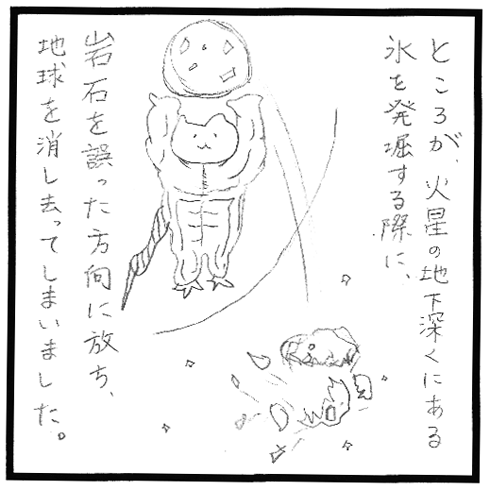 ところが、火星の地下深くにある
氷を発掘する際に、
岩石を誤った方向に放ち、
地球を消し去ってしまいました。